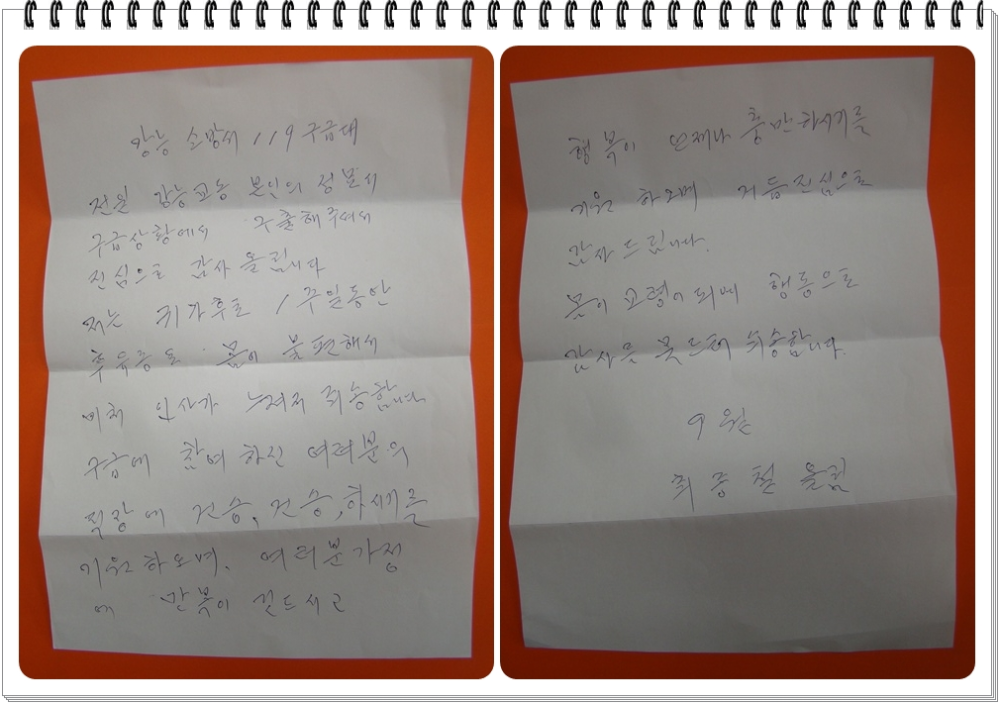 강능 소방서 119 구급대
전일 강능교동 본인의 정보시
구급상황에서 구출해주셔서
진심으로 감사 올림니다
저는 귀가후로 1주일동안
후유증도 몸이 불편해서
미처 인사가 느져저 죄송합니다
구급에 참여 하신 여러분의
직장에 건승, 건승, 하시기를
기원하오며, 여러분가정
에 만복이 깃드시고
행복이 언제나 충만하시기를
기원 하오며 거듭진심으로
감사 드립니다.
몸이 고령이 되메 행동으로
감사를 못드려 죄송합니다.
9월
최종철 올림